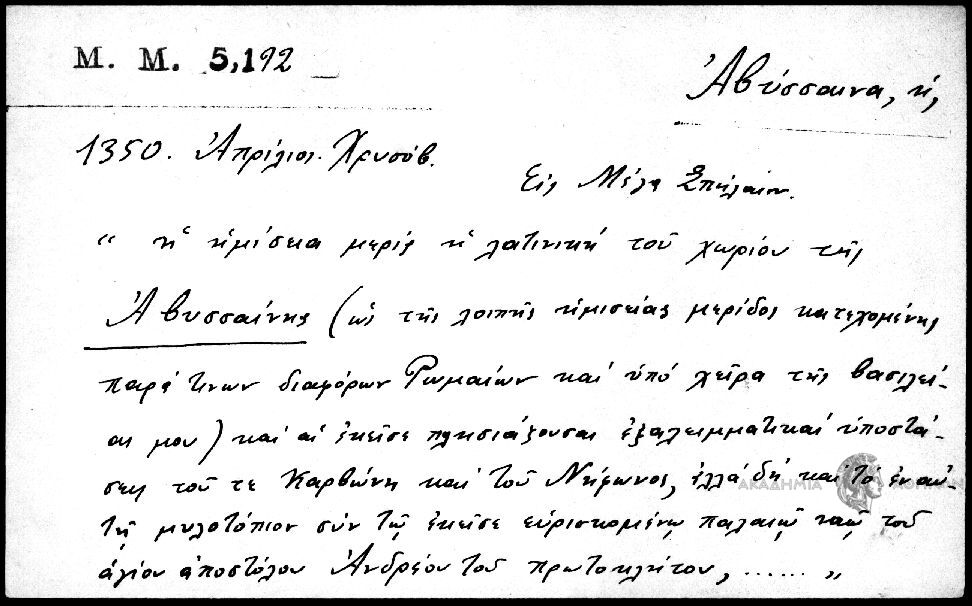 Μ. Μ. 5,192
Ἀβύσσαινα, ἡ,
1350. Ἀπρίλιος. Χρυσόβ.
Εἰς Μέγα Σπήλαιον.
« ἡ ἡμίσεια μερὶς ἡ λατινικὴ τοῦ χωρίου τῆς
Ἀβυσσαίνης (ὡς τῆς λοιπῆς ἡμισείας μερίδος κατεχομένης
παρά τινων διαφόρων Ῥωμαίων καὶ ὑπό χεῖρα τῆς βασιλεί-
ας μου) καὶ αἱ ἐκεῖσε πλησιάζουσαι ἐξαλειμματικαὶ ὑποστά-
σεις τοῦ τε Καρβώνη καὶ τοῦ Νήφωνος, ἀλλὰ δὴ καὶ τὸ ἐν αὐ-
τῇ μυλοτόπιον σὺν τῷ ἐκεῖσε εὑρισκομένῳ παλαιῷ ναῷ τοῦ
ἁγίου ἀποστόλου Ἀνδρέου τοῦ πρωτοκλήτου, ...... »
ΑΚΑΔΗΜΙΑ ΑΘΗΝΩΝ